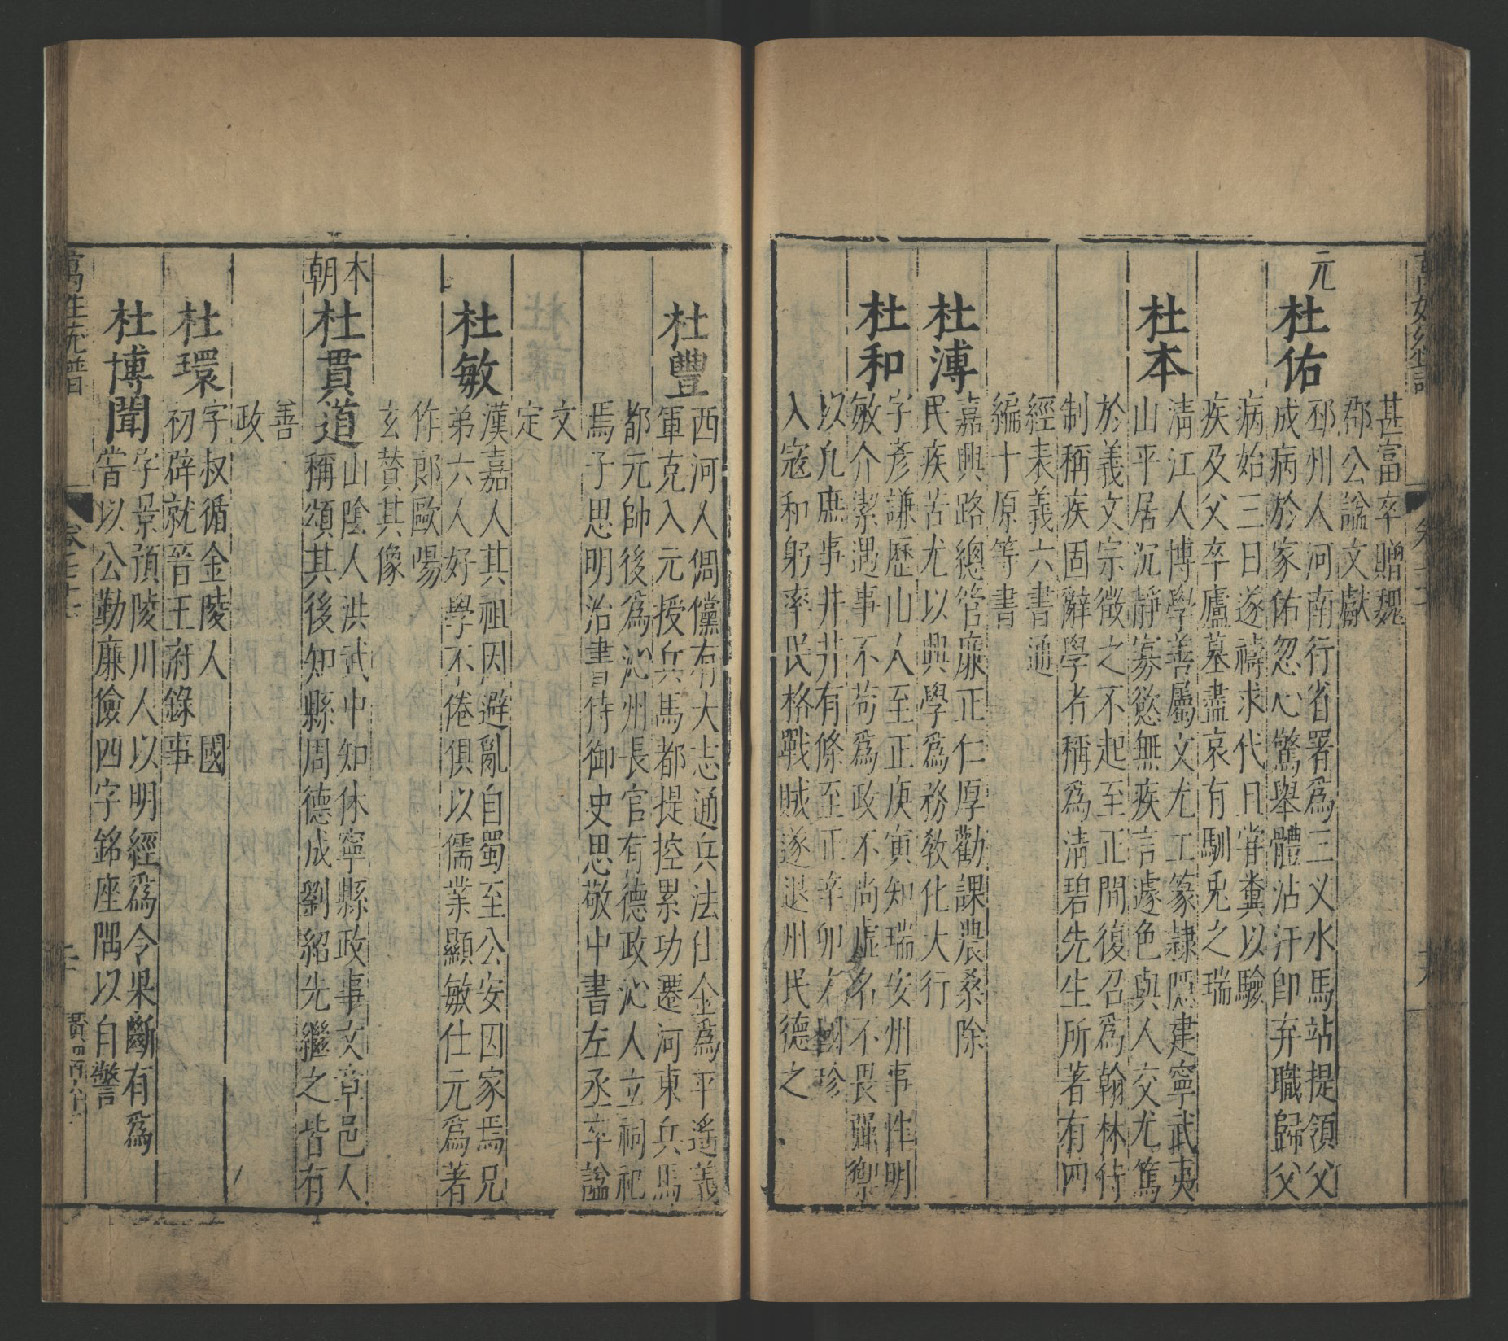 甚富卒贈魏
郡公諡文獻
元
杜佑
邳州人河南行省署爲三乂水馬站提領父
成病於家佑忽心驚舉體沾汗即弃職歸父
病始三日遂禱求代且嘗糞以驗
疾及父卒廬墓盡哀有馴兎之瑞
杜本
清江人博學善屬文尤工篆隷隱建寧武夷
山平居沉靜寡慾無疾言遽色與人交尤篤
於義文宗徵之不起至正間復召爲翰林待
制稱疾固辭學者稱爲清碧先生所著有四
經表義六書通
編十原等書
杜溥
嘉興路總管廉正仁厚勸課農桑除
民疾苦尤以興學爲務敎化大行
杜和
字彥謙歷山人至正庚寅知瑞安州事性明
敏介潔遇事不苟爲政不尚虛名不畏彊禦
以允庶事井井有條至正辛卯方國珍
入寇和躬率民格戰賊遂退州民德之
杜豐
西河人倜儻有大志通兵法仕金爲平遙義
軍克入元授兵馬都提控累功遷河東兵馬
都元帥後爲沁州長官有德政沁人立祠祀
焉子思明治書侍御史思敬中書左丞卒諡
文
定
杜敏
漢嘉人其祖因避亂自蜀至公安因家焉兄
弟六人好學不倦俱以儒業顯敏仕元爲著
作郎歐陽
玄贊其像
本朝
杜貫道
山陰人洪武中知休寧縣政事文章邑人
稱頌其後知縣周德成劉紹先繼之皆有
善
政
杜環
字叔循金陵人國
初辟就晉王府錄事
杜博聞
字景預陵川人以明經爲令果斷有爲
嘗以公勤廉儉四字銘座隅以自警
萬姓統譜